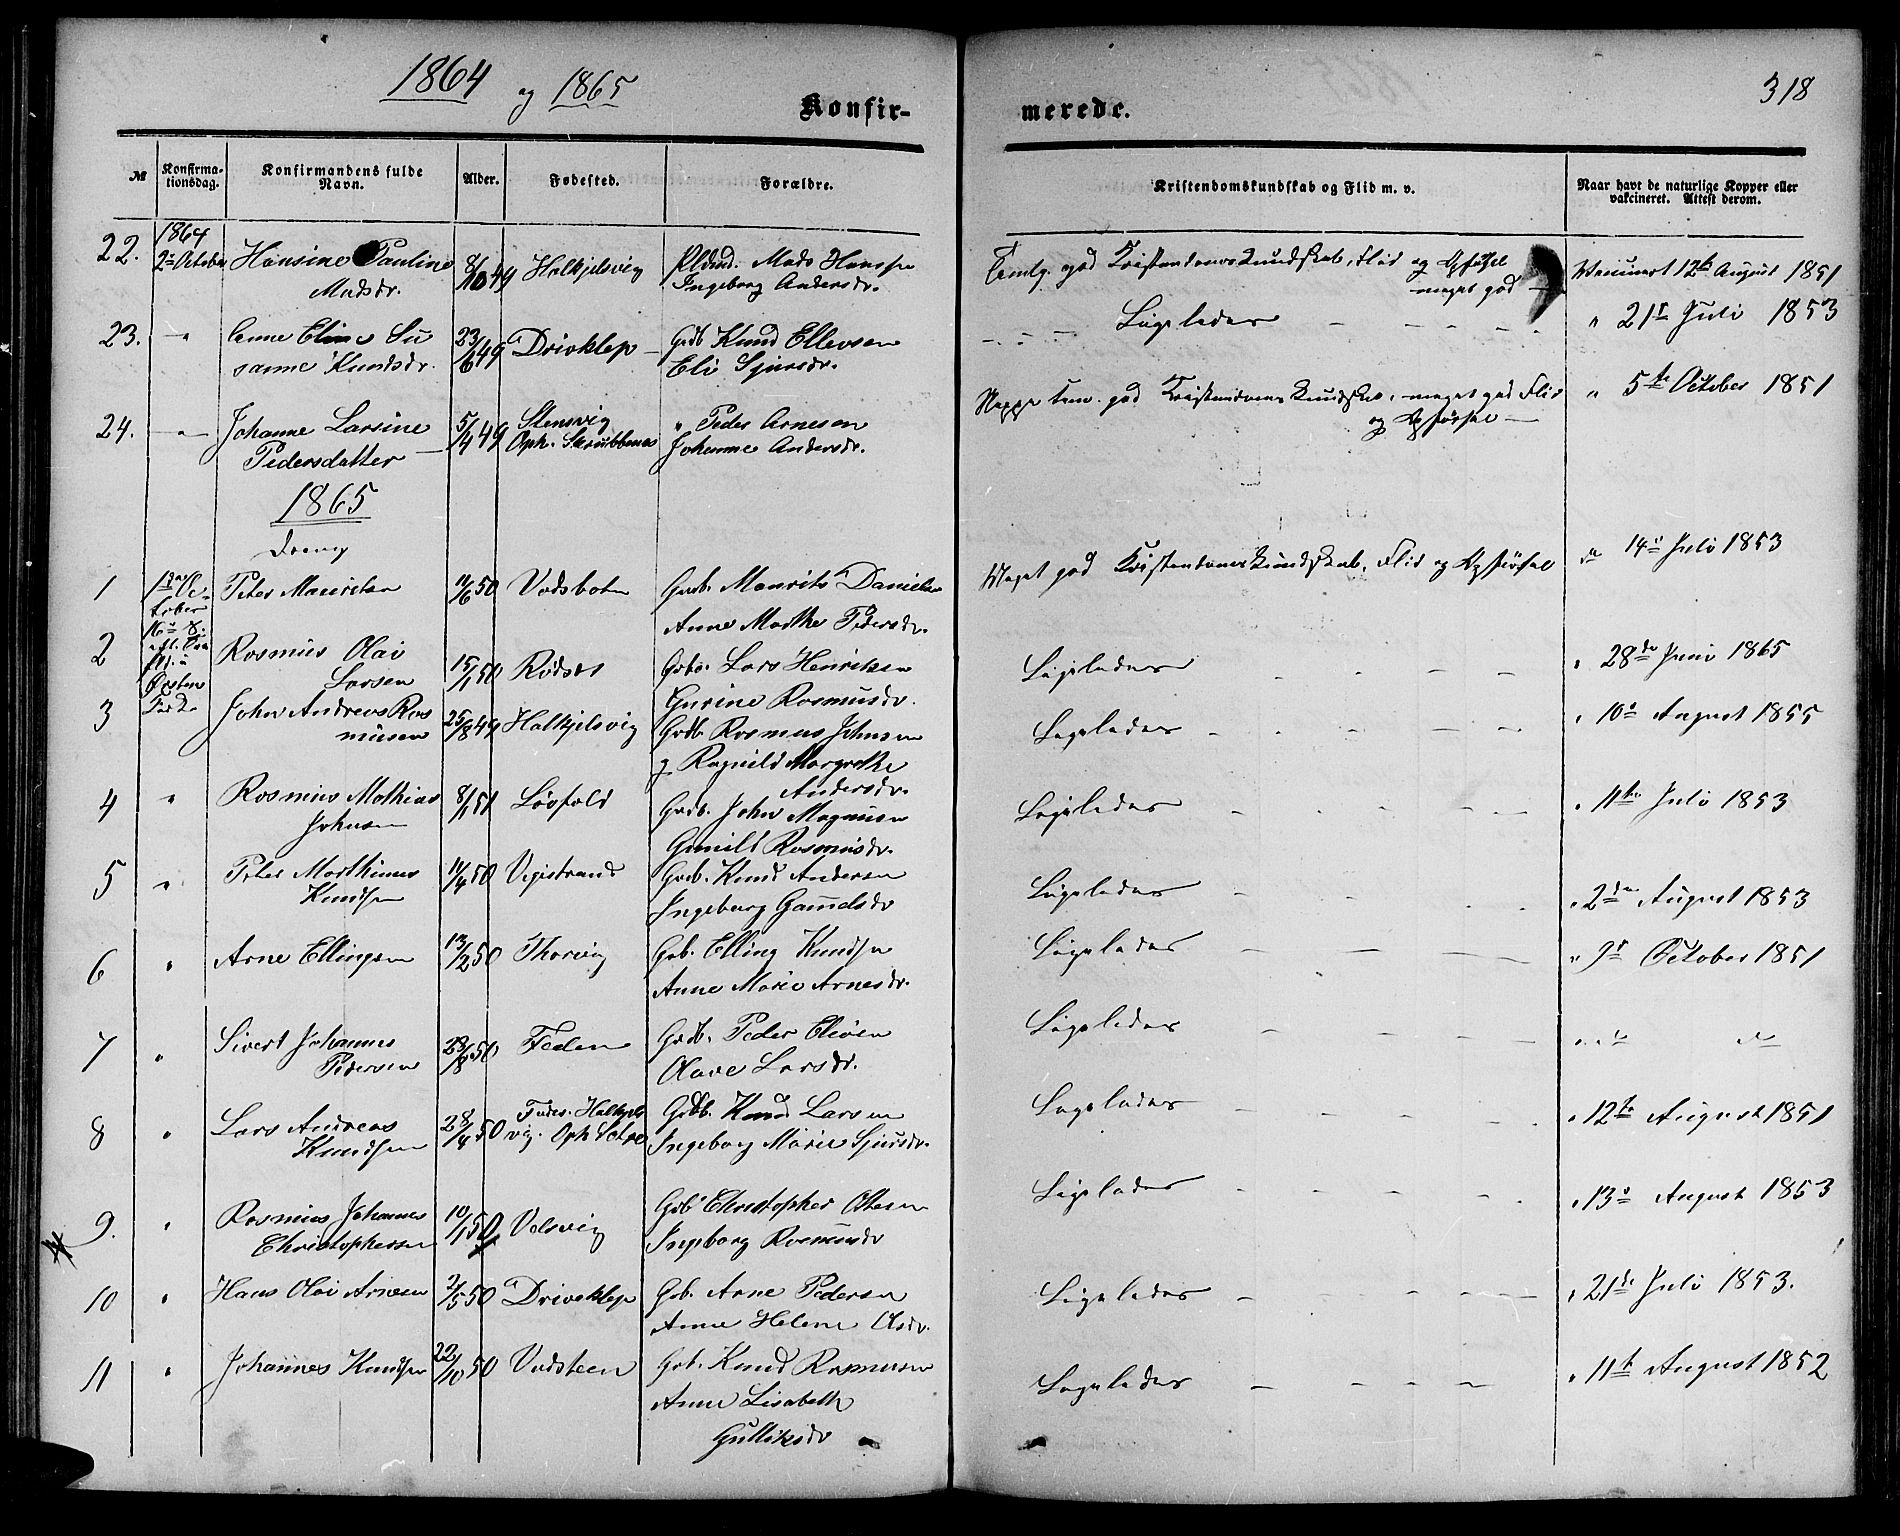 1864 og 1865
Konfir-
merede.
318
№ Konfirma-tionsdag. Konfirmandens fulde Navn. Alder. Fødested. Forældre. Kristendomskundskab og Flid m. v. Naar havt de naturlige Kopper eller vakcineret. Attest derom.
1864
22. 2den October Hansine Pauline 8/10 49 Halkjelsvig Mads Hanssen
Madsdr. Ingeborg Andersdr.
Temlg. god Kristendomskundskab, Flid og Opførsel meget god
Vaccineret 12te August 1851
23. " Anne Eline Su 23/6 49 Drivklep Grdb Knud Ellevsen
sanne Knudsdr. Eli Sjursdr.
Ligeledes " 21de Juli 1853
24. " Johanne Larsine 5/4 49 Stensvig " Peder Arnesen
Pedersdatter Oph. Skrubbenes Johanne Andersdr.
tem. god Kristendomskundskab, meget god Flid
og Opførsel
" 5te October 1851
1865
Dreng
1 1ste October Peter Mauritsen 11/6 50 Vadsbotn Grdb. Maurits Danielsen
Anne Marthe Pedersdr.
Meget god Kristendomskundskab, Flid og Opførsel " 14de Juli 1853
16de S. eft. Tri
i Ørsten
2 Rasmus Olai 15/1 50 Rødset Grdb. Lars Henriksen
Larsen Gurine Rasmusdr.
Ligeledes " 28de Juni 1865
3 John Andreas Ras 25/8 49 Halkjelsvig Grdb Rasmus Johnsen
musen og Ragnild Margrethe
Andersdr.
Ligeledes " 10de August 1855
4 " Rasmus Mathias 8/1 51 Løvfold Grdb. John Magnusen
Johnsen Gunild Rasmusdr.
Ligeledes " 11te Juli 1853
5 " Peter Marthinus 11/4 50 Vigestrand Grdb. Knud Andersen
Knudsen Ingeborg
Ligeledes " 2den August 1853
6 " Arne Ellingsen 13/2 50 Thorvig Grb. Elling Knudsen
Anne Marie Arnesdr.
Ligeledes " 9de October 1851
7 " Sivert Johannes 28/8 50 Feden Grdb. Peder Eliasen
Pedersen Olave Larsdr.
Ligeledes " do do
8 " Lars Andreas 28/4 50 Halkjels Grdb. Knud Larsen
Knudsen vig. Oph Sætre Ingeborg Marie Sjursdr.
Ligeledes " 12te August 1851
9. " Rasmus Johannes 10/1 50 Velsvig Grb Christopher
Christophersen Ingeborg Rasmusdr
Ligeledes " 13de August 1853
10 " Hans Olai Arnesen 2/5 50 Driveklep Grb. Arne Pedersen
Anne Helene Olsdr.
Ligeledes " 21de Juli 1853.
11 " Johannes Knudsen 22/10 50 Vadsteen Grb. Knud Rasmusen
Anne Lisabeth
Gulliksdr
Ligeledes " 11te August 1852